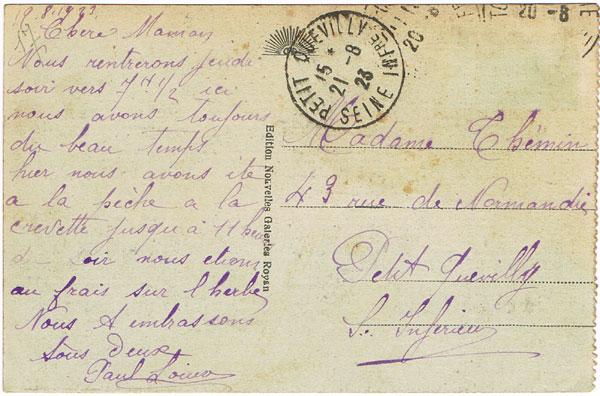 18.8.1923
Chere Maman
Nous rentrerons jeudi
soir vers 7 H 1/2 ici
nous avons toujours
du beau temps
hier nous avons été
a la pêche a la
crevette jusqu'à 11 heu
soir nous etions
au frais sur l'herbe
Nous t embrassons
tous deux
Paul
Edition Nouvelles Galeries Royan
PETIT QUEVILLY
15 * 
21 - 8
23
SEINE INFRE
20 - 8
Madame Thémin
43 rue de Normandie
Petit Quevilly
Se Inferieu